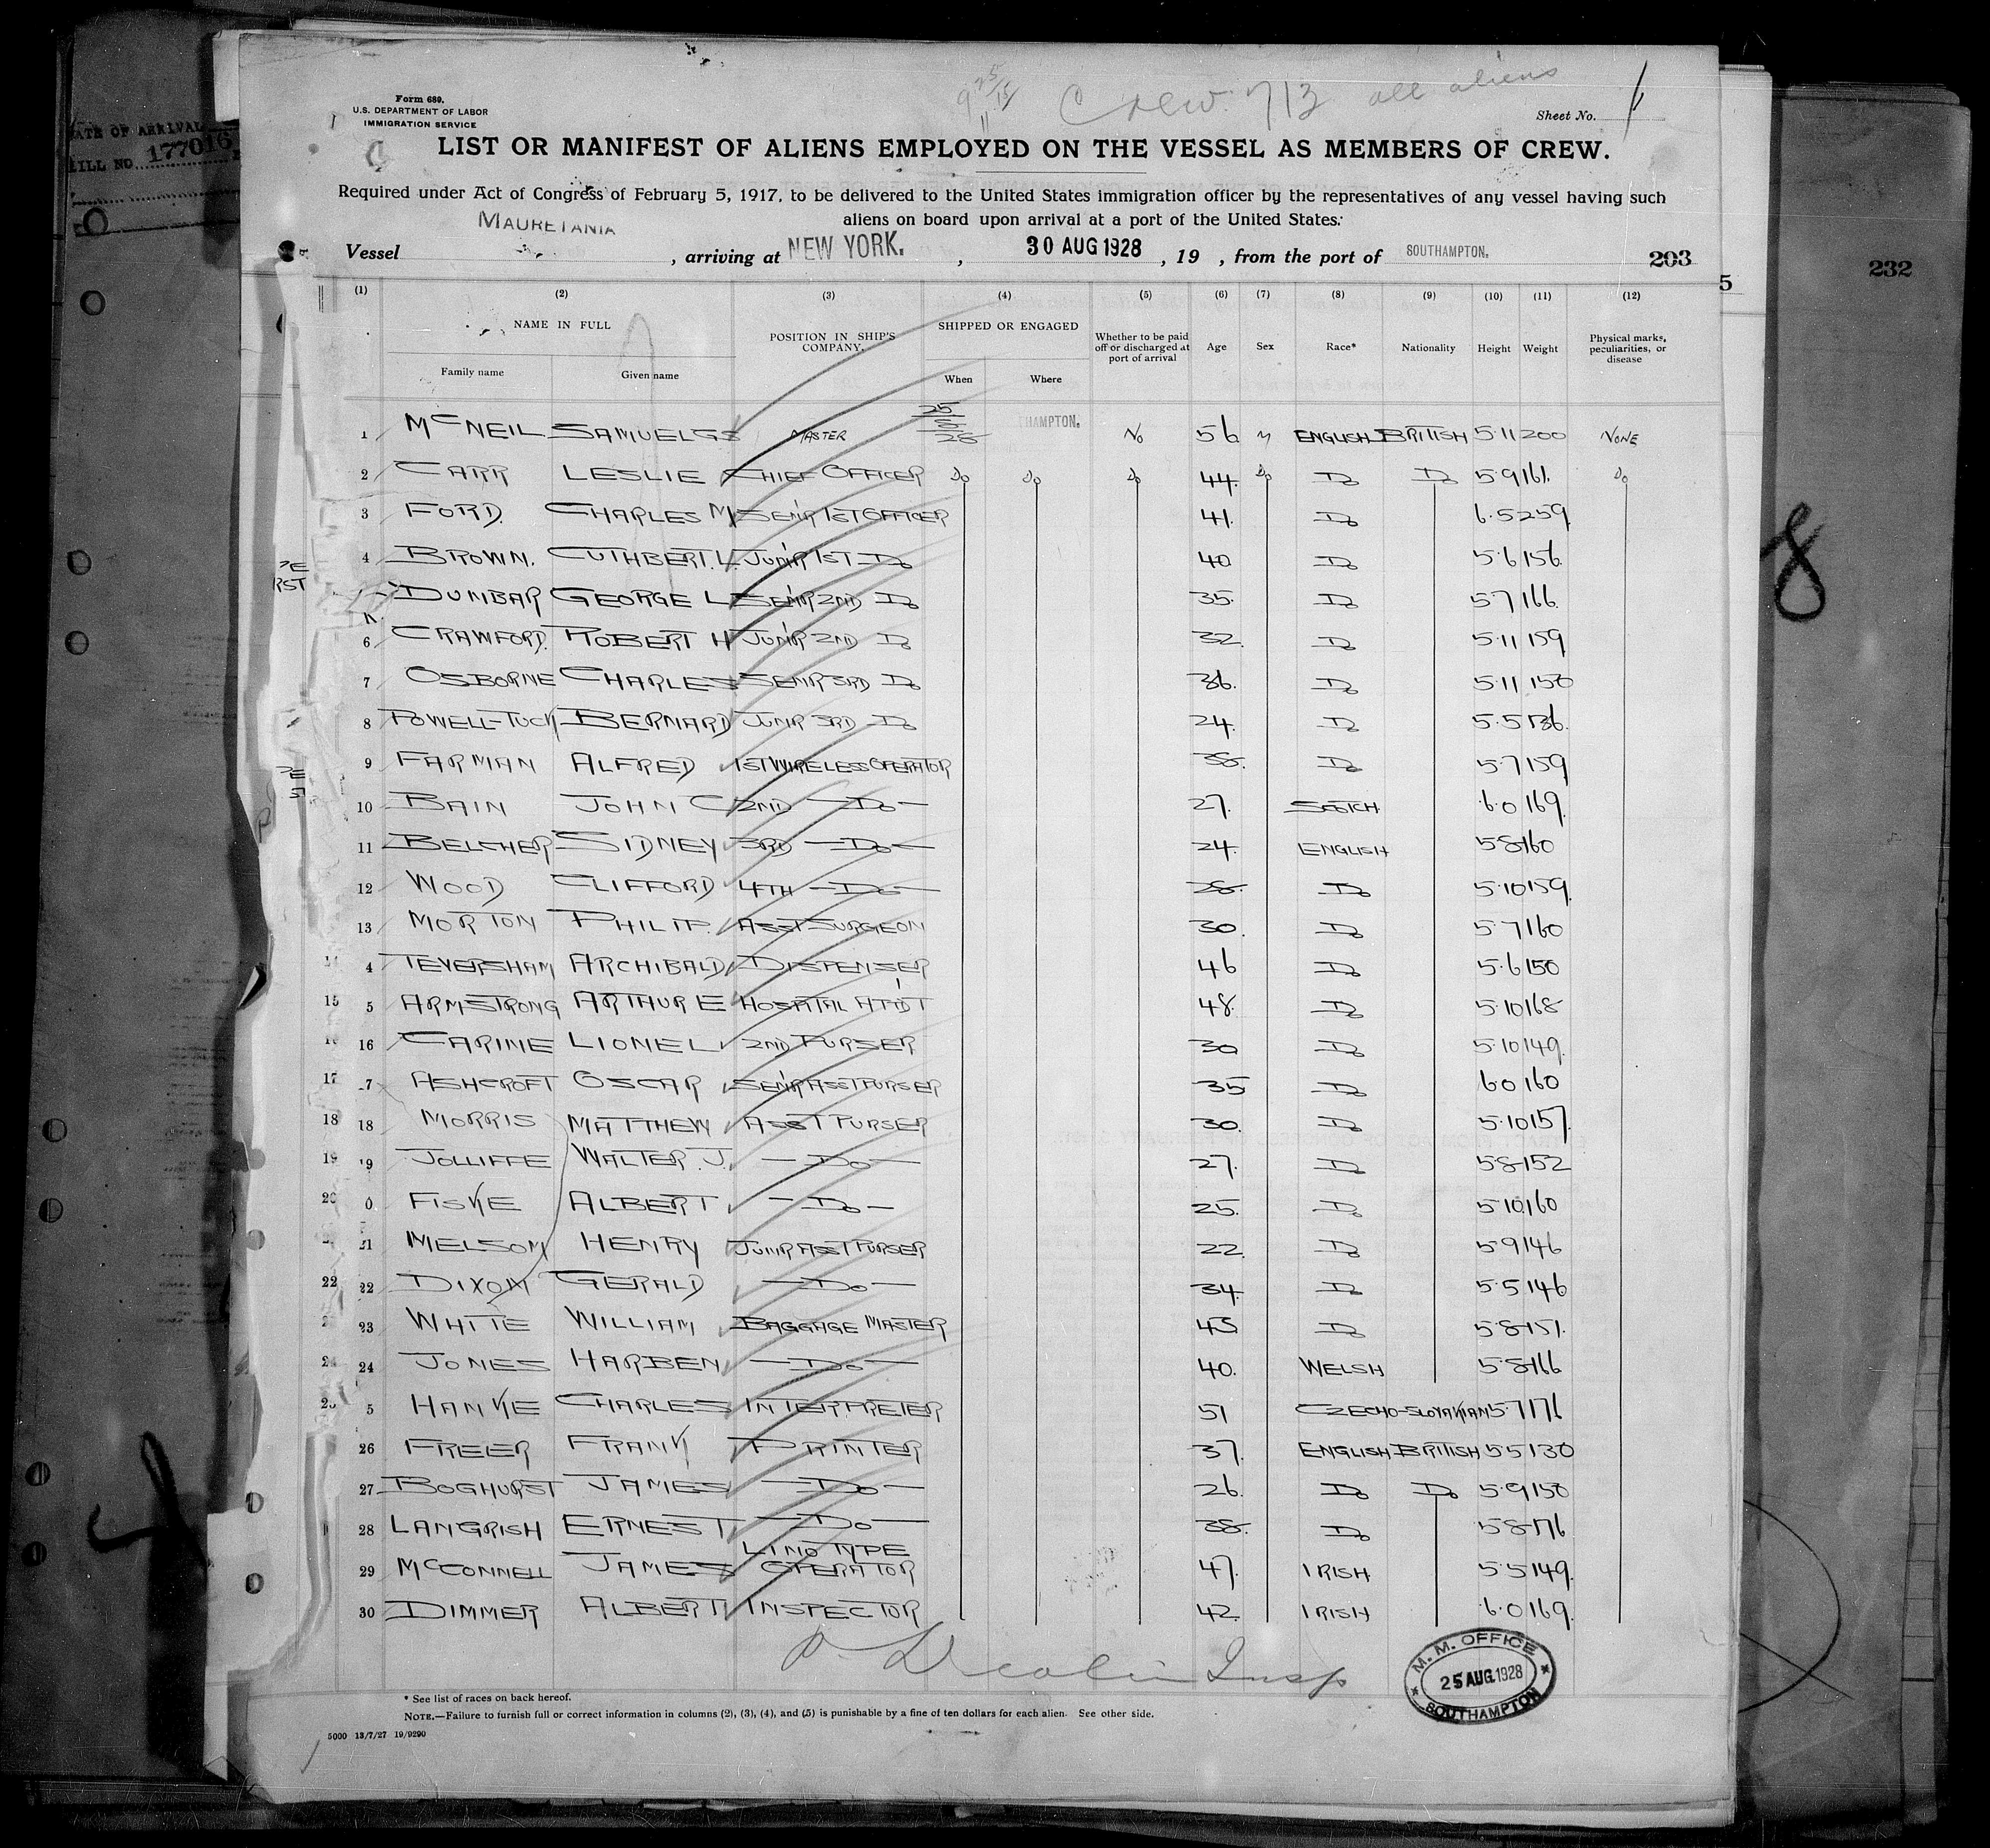 DATE OF ARRIVAL
BILL NO. 177016
Form 689.
U.S. DEPARTMENT OF LABOR
IMMIGRATION SERVICE
Crew 713 all aliens
Sheet No. 1
LIST OR MANIFEST OF ALIENS EMPLOYED ON THE VESSEL AS MEMBERS OF CREW.
Required under Act of Congress of February 5, 1917, to be delivered to the United States immigration officer by the representatives of any vessel having such
aliens on board upon arrival at a port of the United States.
Vessel MAURETANIA, arriving at NEW YORK., 30 AUG 1928, 19 , from the port of SOUTHAMPTON. 203
5
232
8
(1) (2) (3) (4) (5) (6) (7) (8) (9) (10) (11) (12)
NAME IN FULL POSITION IN SHIP'S COMPANY. SHIPPED OR ENGAGED Whether to be paid off or discharged at port of arrival Age Sex Race* Nationality Height Weight Physical marks, peculiarities, or disease
Family name Given name When Where
1 McNEIL SAMUEL G S MASTER 25/8/28 HAMPTON. No 56 M ENGLISH BRITISH 5·11 200 NONE
2 CARR LESLIE CHIEF OFFICER Do Do Do 44. Do Do Do 5·9 161. Do
3 FORD. CHARLES M SEN'R 1ST OFFICER 41. Do 6·5 259
4 BROWN. CUTHBERT. L. JUN'R 1ST Do 40 Do 5·6 156
DUNBAR GEORGE L SEN'R 2ND Do 35. Do 5·7 166.
6 CRAWFORD. ROBERT H JUN'R 2ND Do 32. Do 5·11 159
7 OSBORNE CHARLES SEN'R 3RD Do 36. Do 5·11 150
8 POWELL-TUCK BERNARD JUN'R 3RD Do 24. Do 5·5 136.
9 FARMAN ALFRED 1ST WIRELESS OPERATOR 38. Do 5·7 159
10 BAIN JOHN C 2ND —Do— 27. SCOTCH 6·0 169.
11 BELCHER SIDNEY 3RD —Do— 24. ENGLISH 5·8 160
12 WOOD CLIFFORD 4TH —Do— 28. Do 5·10 159.
13 MORTON PHILIP. ASST SURGEON 30. Do 5·7 160
4 TEVERSHAM ARCHIBALD DISPENSER 46 Do 5·6 150
15 5 ARMSTRONG ARTHUR E HOSPITAL ATT'D'T 48. Do 5·10 168
16 CARINE LIONEL 2ND PURSER 30 Do 5·10 149.
17 7 ASHCROFT OSCAR SEN'R ASST PURSER 35 Do 6·0 160
18 18 MORRIS MATTHEW ASST PURSER 30. Do 5·10 157.
19 9 JOLLIFFE WALTER. J. —Do— 27. Do 5·8 152
20 0 FISKE ALBERT —Do— 25. Do 5·10 160
21 MELSOM HENRY JUN'R ASST PURSER 22. Do 5·9 146
22 22 DIXON GERALD —Do— 34. Do 5·5 146
23 WHITE WILLIAM BAGGAGE MASTER 43 Do 5·8 151.
24 24 JONES HARBEN —Do— 40. WELSH 5·8 166
5 HANKE CHARLES INTERPRETER 51 CZECHO-SLOVAKIAN 5·7 176
26 FREER FRANK PRINTER 37. ENGLISH BRITISH 5·5 130
27 BOGHURST JAMES —Do— 26. Do Do 5·9 150
28 LANGRISH ERNEST —Do— 38. Do 5·8 176
29 McCONNELL JAMES LINO TYPE OPERATOR 47. IRISH 5·5 149.
30 DIMMER ALBERT INSPECTOR 42. IRISH 6·0 169.
Insp
M. M. OFFICE
25 AUG. 1928
SOUTHAMPTON
* See list of races on back hereof.
NOTE.—Failure to furnish full or correct information in columns (2), (3), (4), and (5) is punishable by a fine of ten dollars for each alien. See other side.
5000 13/7/27 19/9290